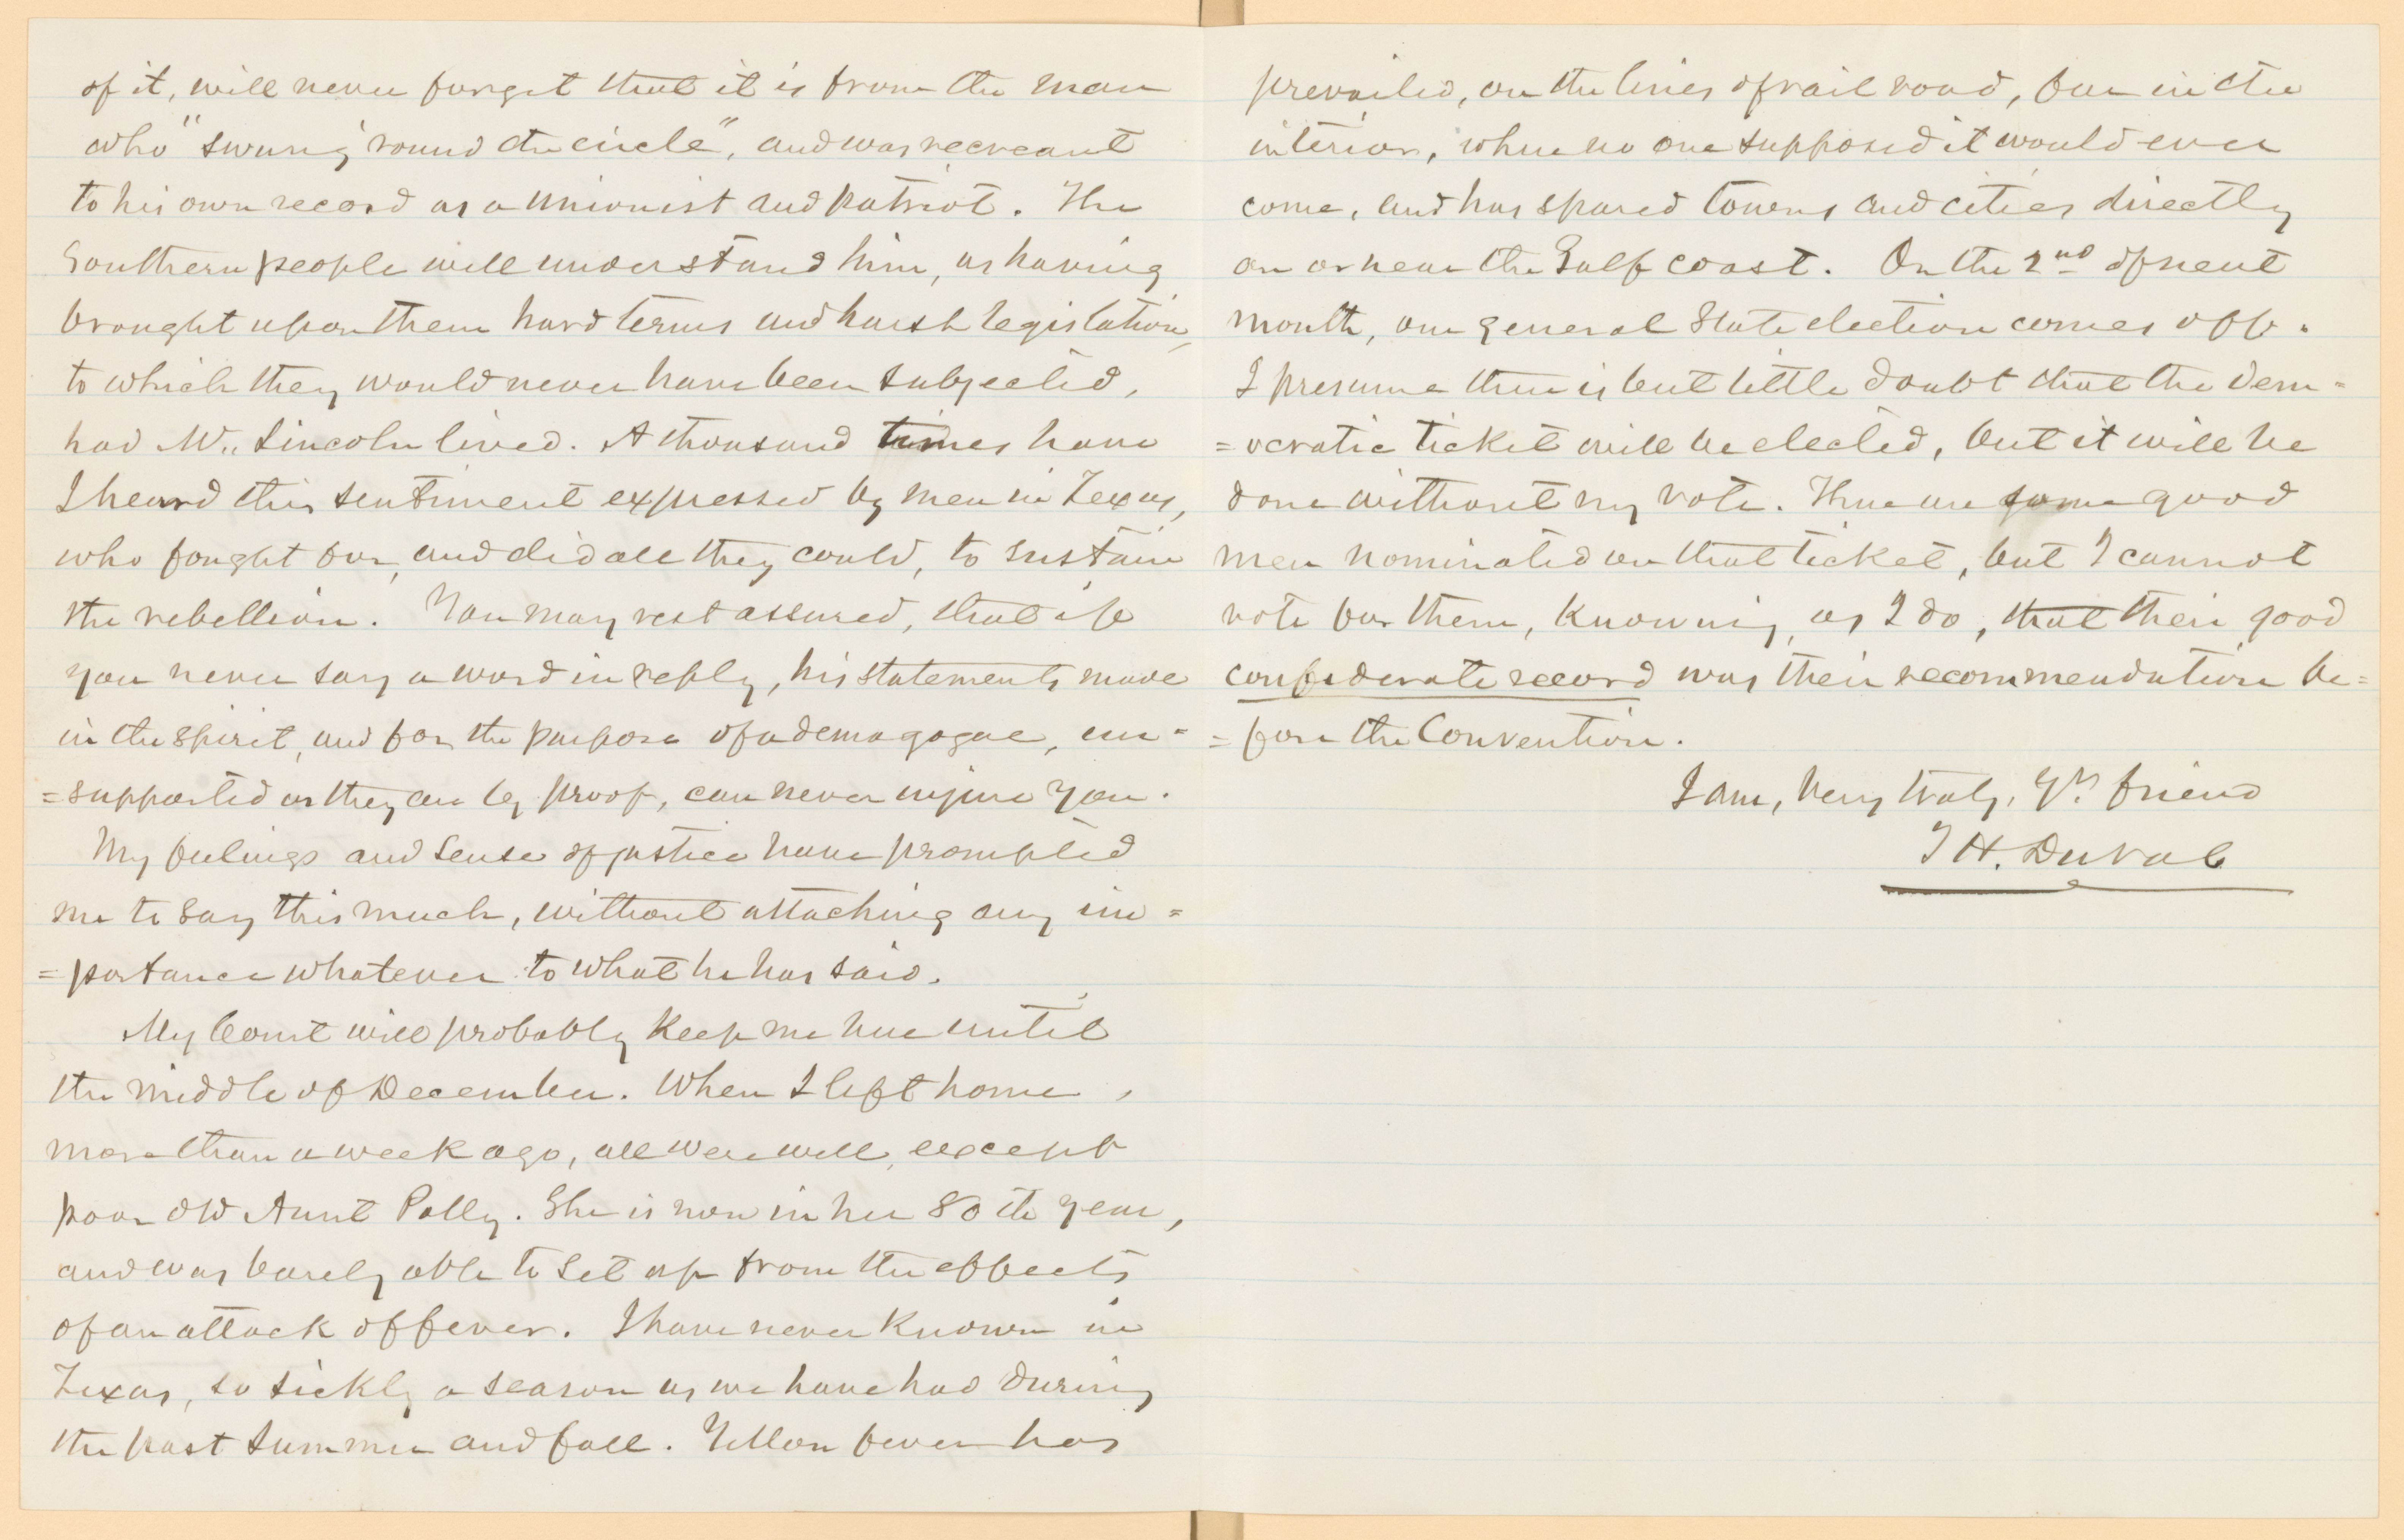 of it, will never forget that it is from the man
who "swung 'round the circle", and was recreant
to his own record as a Unionist and patriot. The
Southern people will understand him, as having
brought upon them hard terms and harsh legislation,
to which they would never have been subjected,
had Mr. Lincoln lived. A thousand times have
I heard this sentiment expressed by men in Texas,
who fought for, and did all they could, to sustain
the rebellion. You may rest assured, that if
you never say a word in reply, his statements made
in the spirit, and for the purpose of a demagogue, un=
=supported as they are by proof, can never injure you.
My feelings and sense of justice have prompted
me to say this much, without attaching any im=
=portance whatever to what he has said.
My Court will probably keep me here until
the middle of December. When I left home,
more than a week ago, all were well, except
poor old Aunt Polly. She is now in her 80th year,
and was barely able to set up from the effects
of an attack of fever. I have never known in
Texas, so sickly a season as we have had during
the past summer and fall. Yellow fever has
prevailed, on the lines of rail road, far in the
interior, where no one supposed it would ever
come, and has spared towns and cities directly
on or near the Gulf coast. On the 2nd of next
month, our general State election comes off.
I presume there is but little doubt that the dem=
=ocratic ticket will be elected, but it will be
done without my vote. There are some good
men nominated on that ticket, but I cannot
vote for them, knowing, as I do, that their good
confederate record was their recommendation be=
=fore the Convention.
I am, Very truly, Yr. friend
T H. Duval